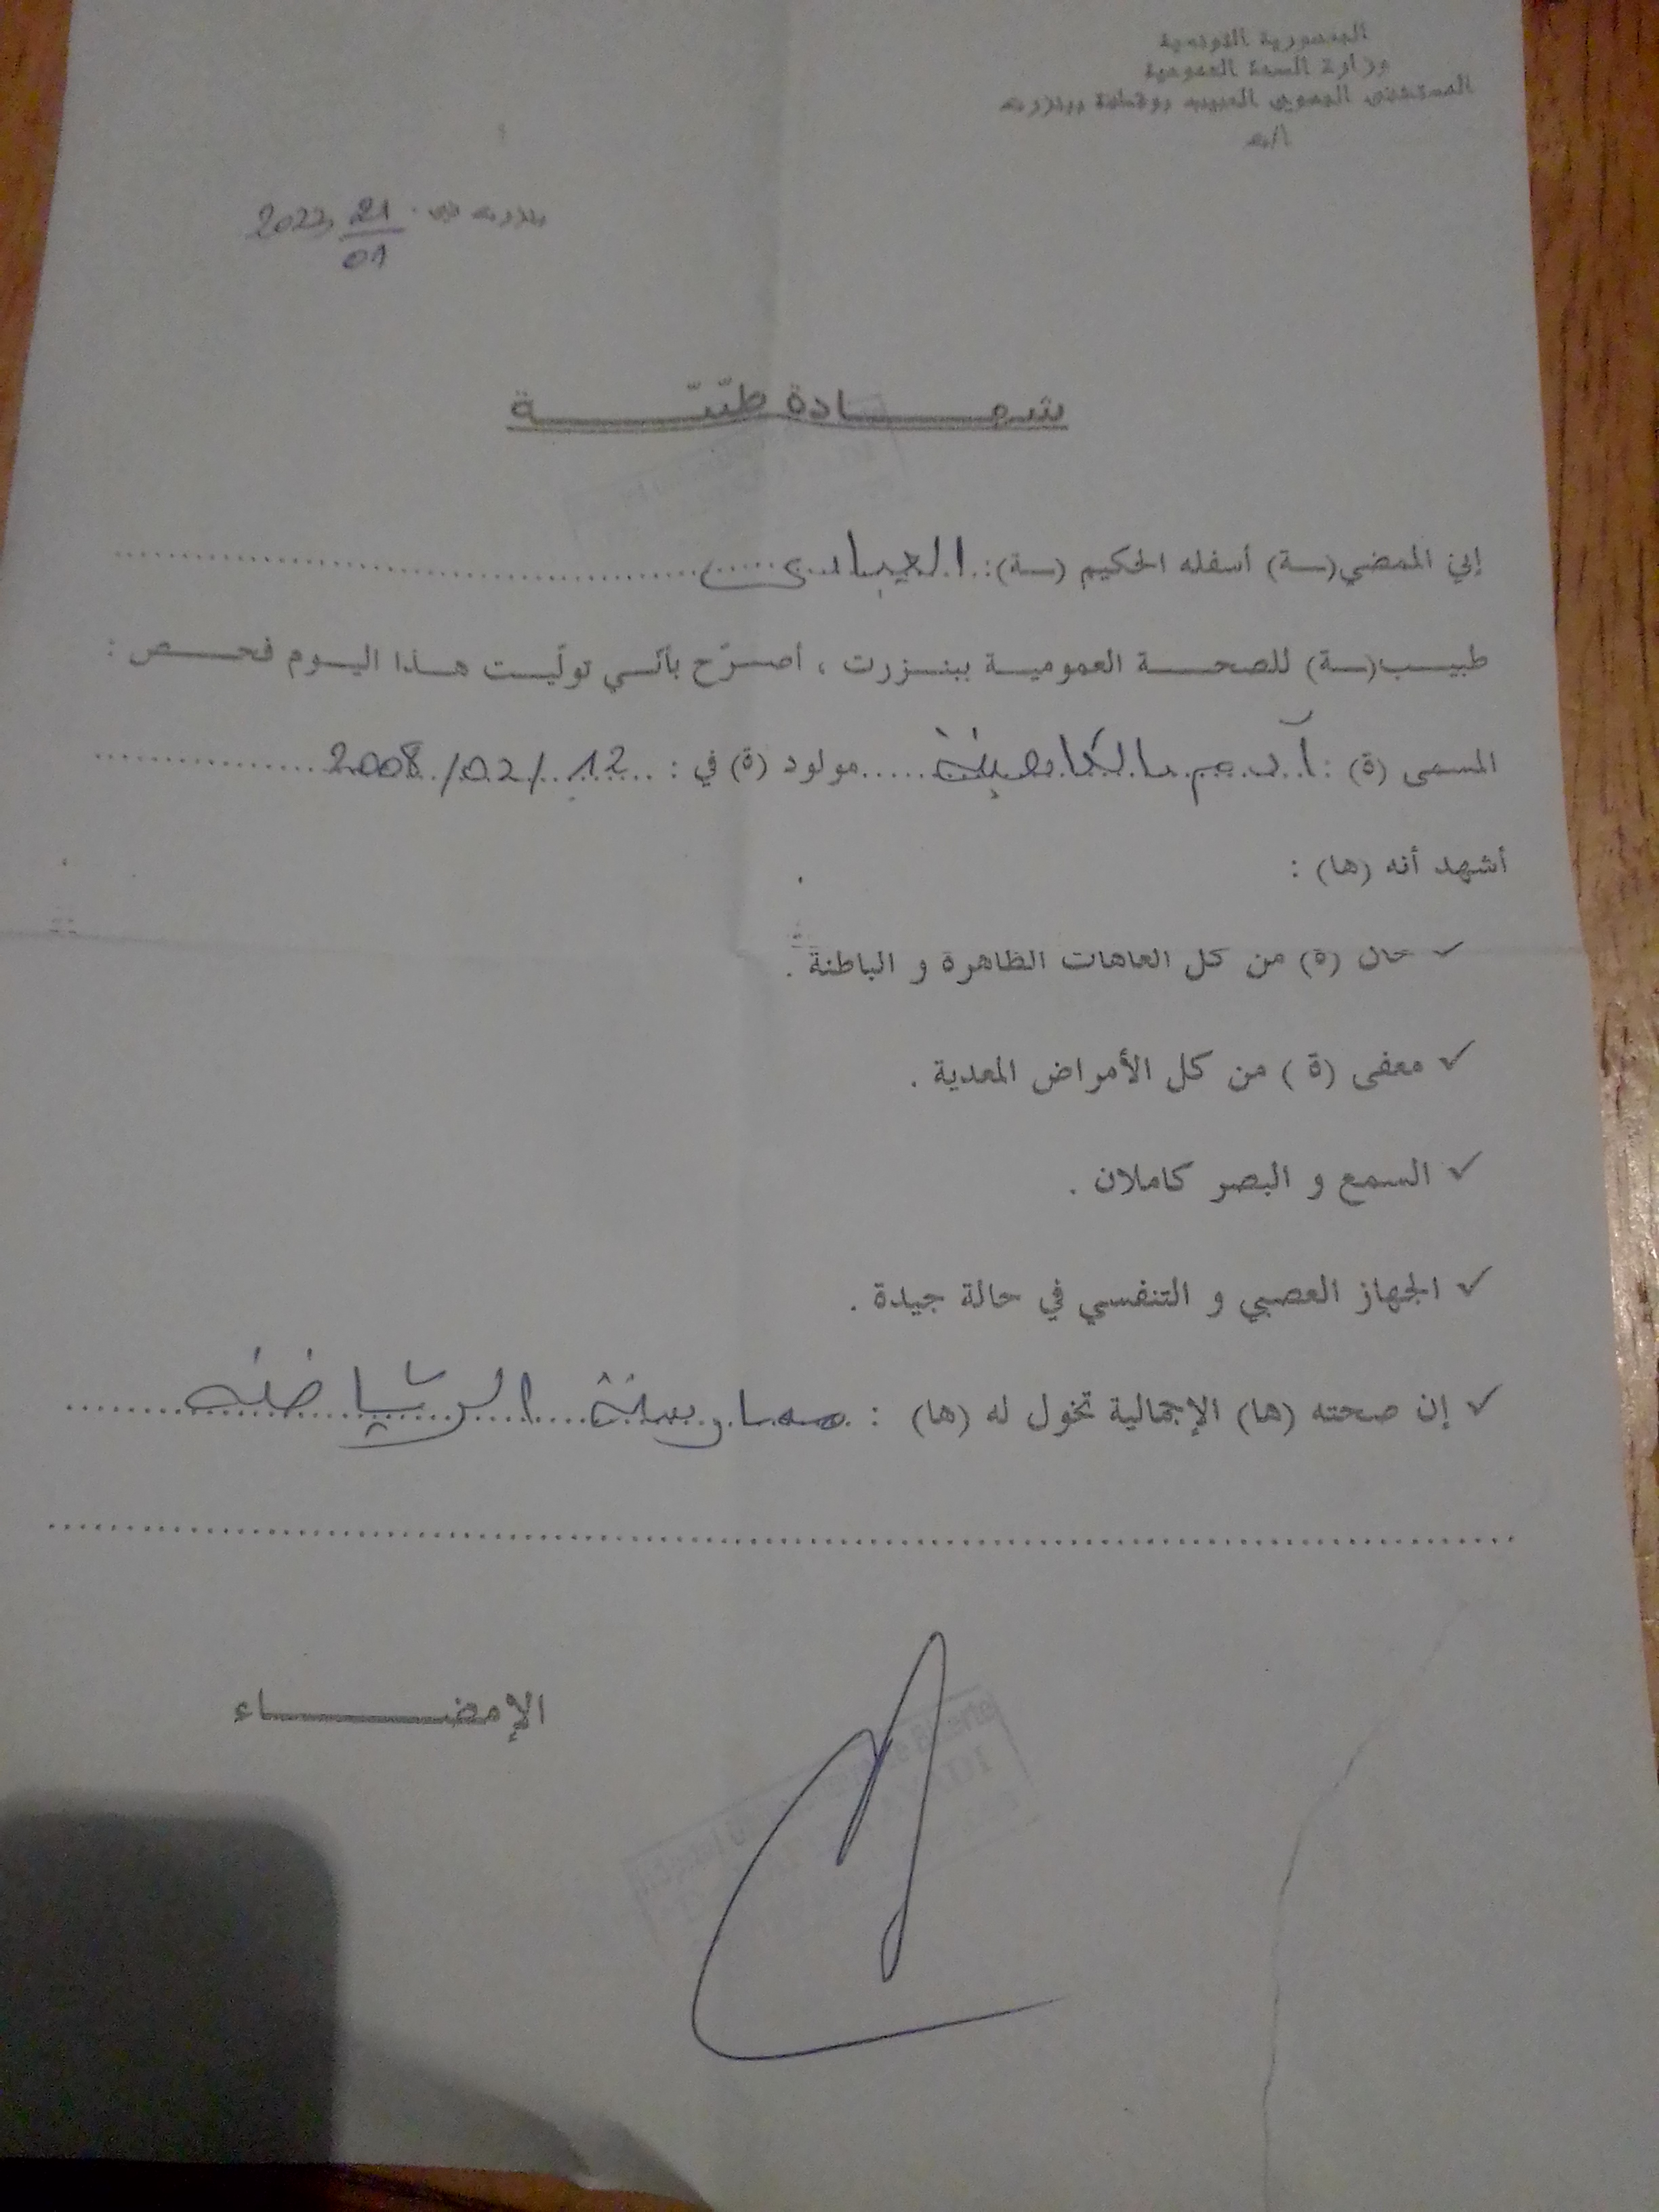 الجمهورية التونسية
وزارة الصحة العمومية
المستشفى الجهوي الحبيب بوقطفة ببنزرت
بنزرت في 21/01
شهادة طبّيّة
إني الممضي(ـة) أسفله الحكيم (ـة): العيادي
طبيب(ـة) للصحة العمومية ببنزرت ، أصرّح بأنّي تولّيت هذا اليوم فحص :
المسمى (ة) : آدم مولود (ة) في : 12/02/2008
أشهد أنه (ها) :
✓ خال (ة) من كل العاهات الظاهرة و الباطنة .
✓ معفى (ة ) من كل الأمراض المعدية .
✓ السمع و البصر كاملان .
✓ الجهاز العصبي و التنفسي في حالة جيدة .
✓ إن صحته (ها) الإجمالية تخول له (ها) : ممارسة الرياضة
الإمضاء